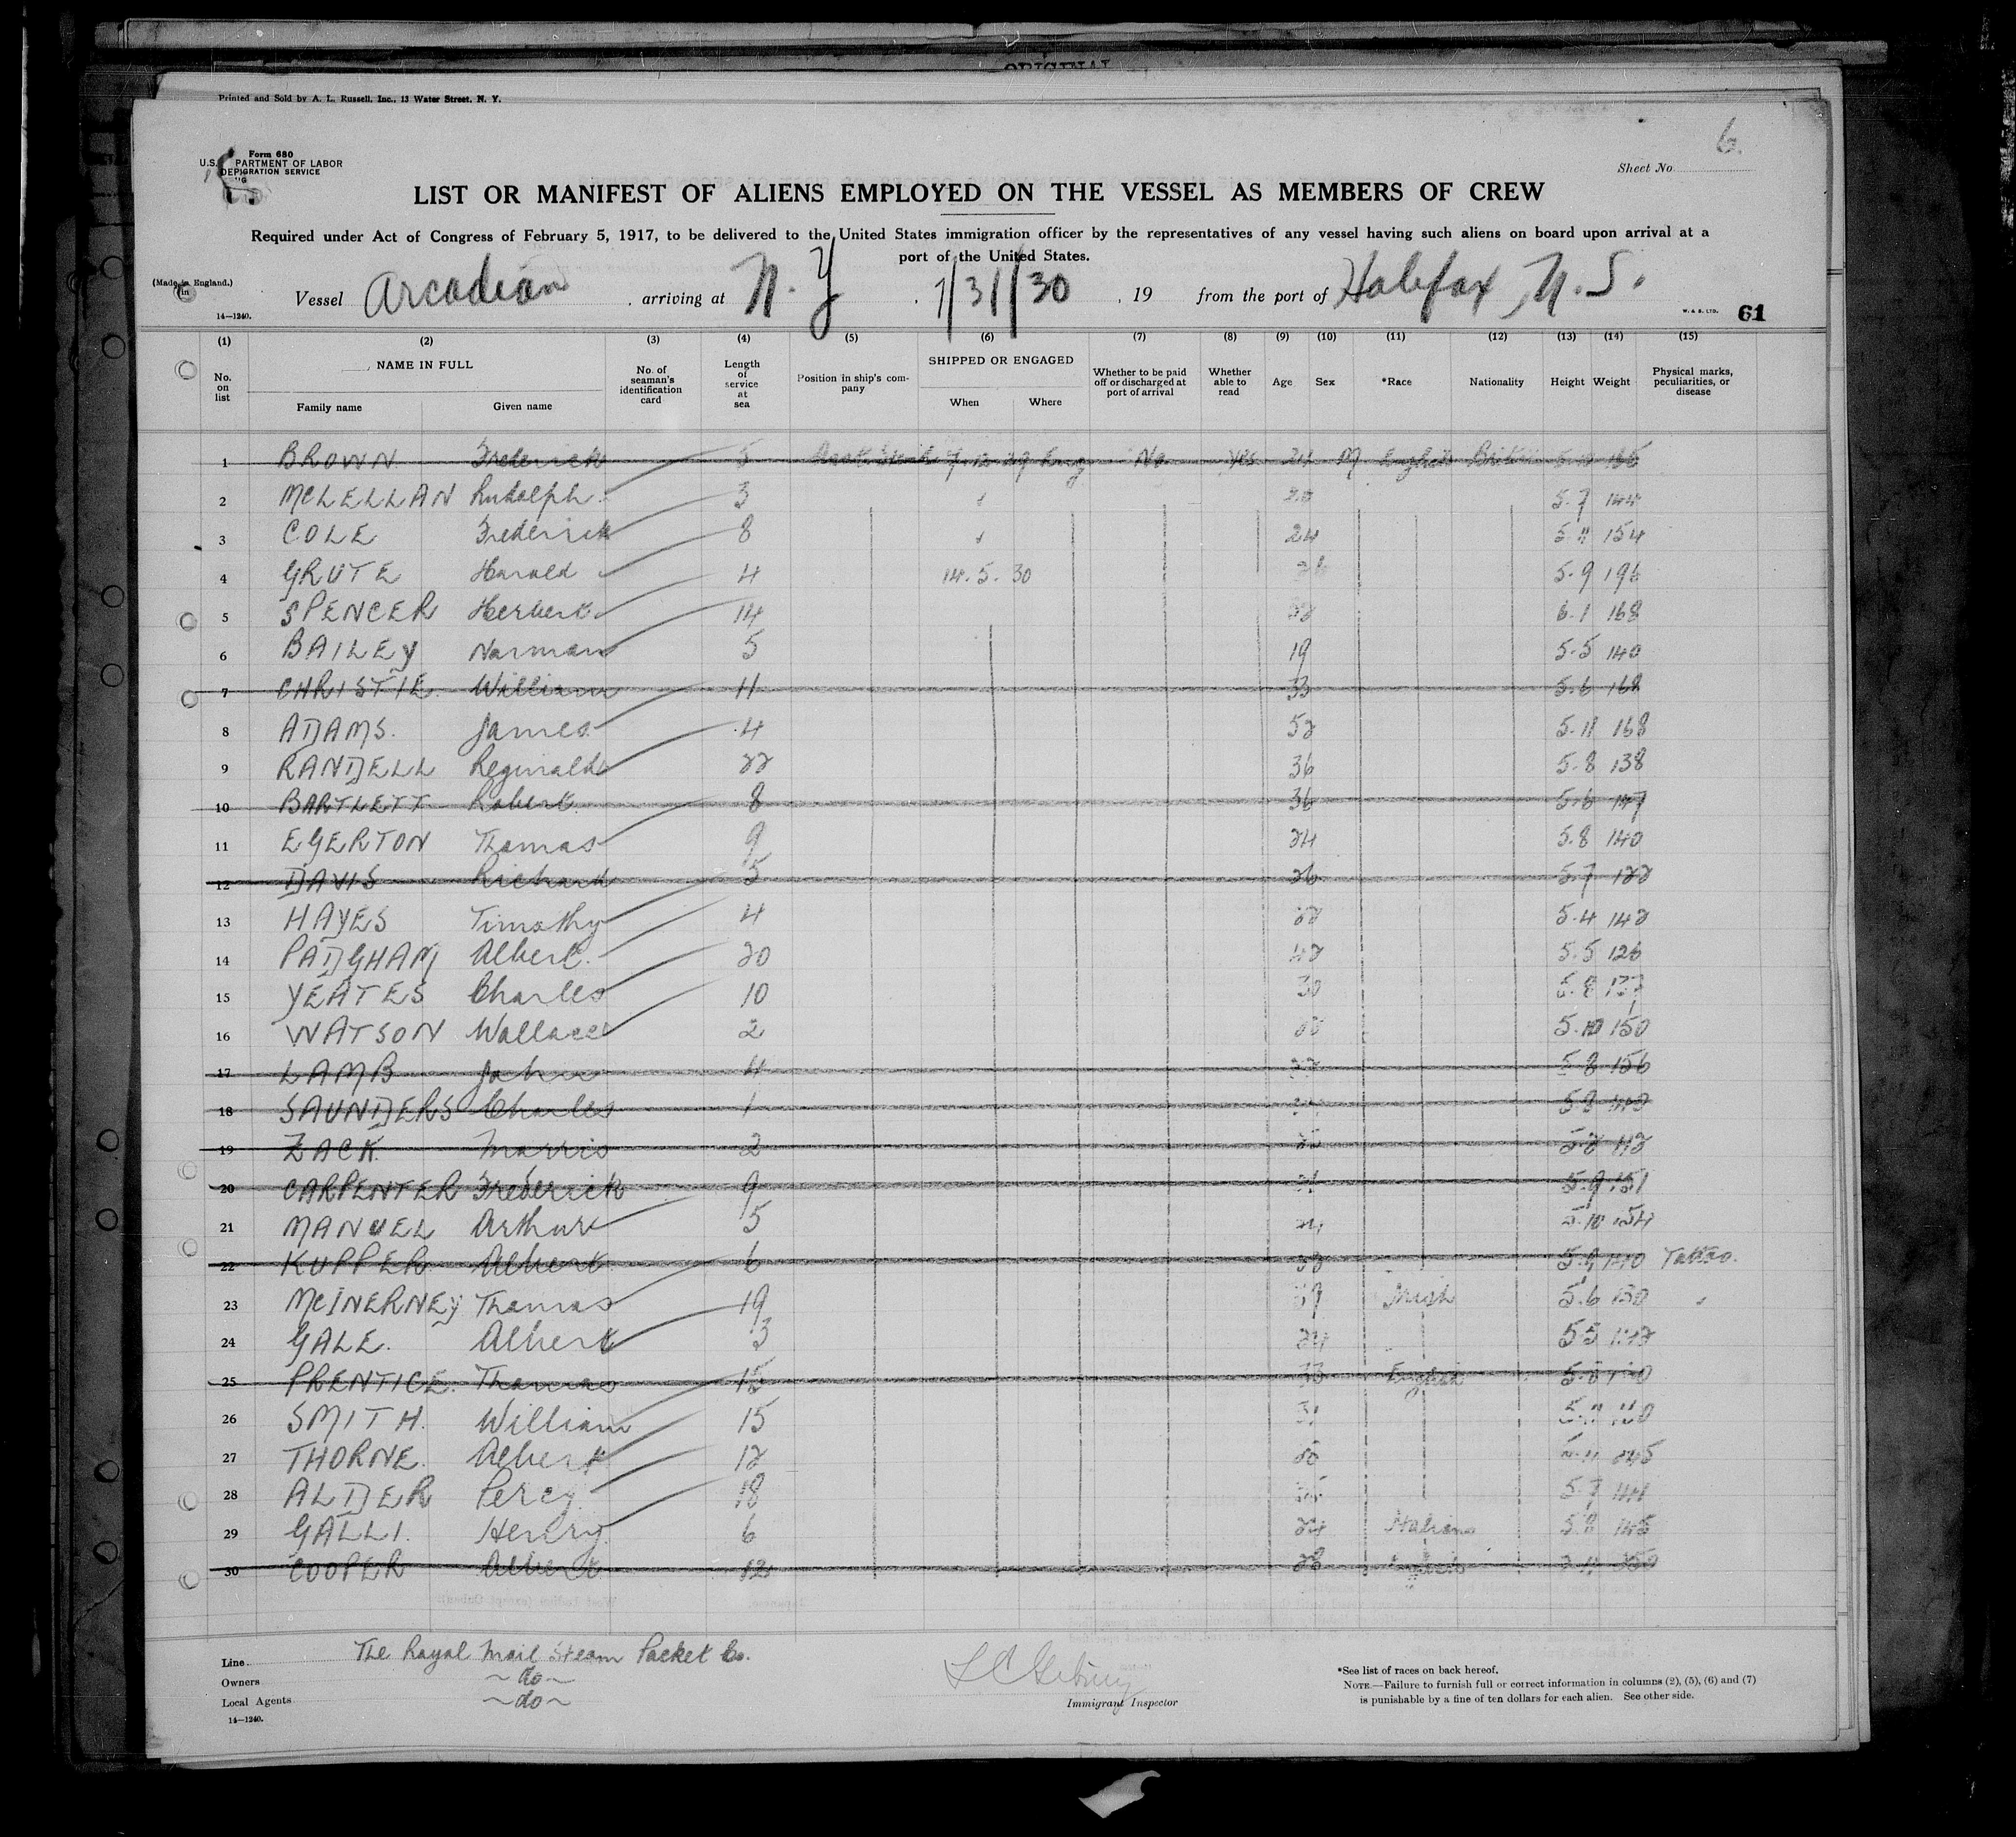 ORIGINAL
Printed and Sold by A. L. Russell, Inc., 13 Water Street, N. Y.
6.
Form 680
U.S. PARTMENT OF LABOR
IGRATION SERVICE
Sheet No
LIST OR MANIFEST OF ALIENS EMPLOYED ON THE VESSEL AS MEMBERS OF CREW
Required under Act of Congress of February 5, 1917, to be delivered to the United States immigration officer by the representatives of any vessel having such aliens on board upon arrival at a
port of the United States.
(Made in England.)
Vessel Arcadian, arriving at N. Y. 7/31/30, 19 from the port of Halifax, N. S.
14—1240. W. & S. LTD. 61
(1) (2) (3) (4) (5) (6) (7) (8) (9) (10) (11) (12) (13) (14) (15)
No. on list NAME IN FULL Family name Given name No. of seaman's identification card Length of service at sea Position in ship's company SHIPPED OR ENGAGED When Where Whether to be paid off or discharged at port of arrival Whether able to read Age Sex *Race Nationality Height Weight Physical marks, peculiarities, or disease
1 BROWN Frederick 5 7.12.29 No Yes 24 M English 
2 McLELLAN Rudolph 3 5.7 144
3 COLE Frederick 8 24 5.11 154
4 GRUTE Harold 4 14.5.30 5.9 196
5 SPENCER Herbert 14 6.1 168
6 BAILEY Norman 5 19 5.5 140
7 CHRISTIE William 11 33 5.6 168
8 ADAMS. James 4 52 5.11 168
9 RANDELL Reginald 22 36 5.8 138
10 BARTLETT Robert 8 36 5.6 147
11 EGERTON Thomas 9 24 5.8 140
12 DAVIS Richard 5 26 5.7 122
13 HAYES Timothy 4 5.4 142
14 PADGHAM Albert. 20 42 5.5 126
15 YEATES Charles 10 30 5.8
16 WATSON Wallace 2 5.10 150
17 LAMB John 4 5.8 156
18 SAUNDERS Charles 1 5.8
19 ZACK Morris 2
20 CARPENTER Frederick 9 5.9 151
21 MANUEL Arthur 5 5.10 154
22 KUPPER Albert 6 Tattoo.
23 McINERNEY Thomas 19 Irish 5.6
24 GALE. Albert 3 24 5.5
25 PRENTICE. Thomas 15 33 English
26 SMITH. William 15 31
27 THORNE. Albert 12
28 ALDER Percy. 18 5.7
29 GALLI. Henry. 6 24 Italian 5.8 145
30 COOPER Albert 12 28
Line The Royal Mail Steam Packet Co.
Owners ~ do ~
Local Agents ~ do ~
14—1240.
Immigrant Inspector
*See list of races on back hereof.
NOTE.—Failure to furnish full or correct information in columns (2), (5), (6) and (7)
is punishable by a fine of ten dollars for each alien. See other side.